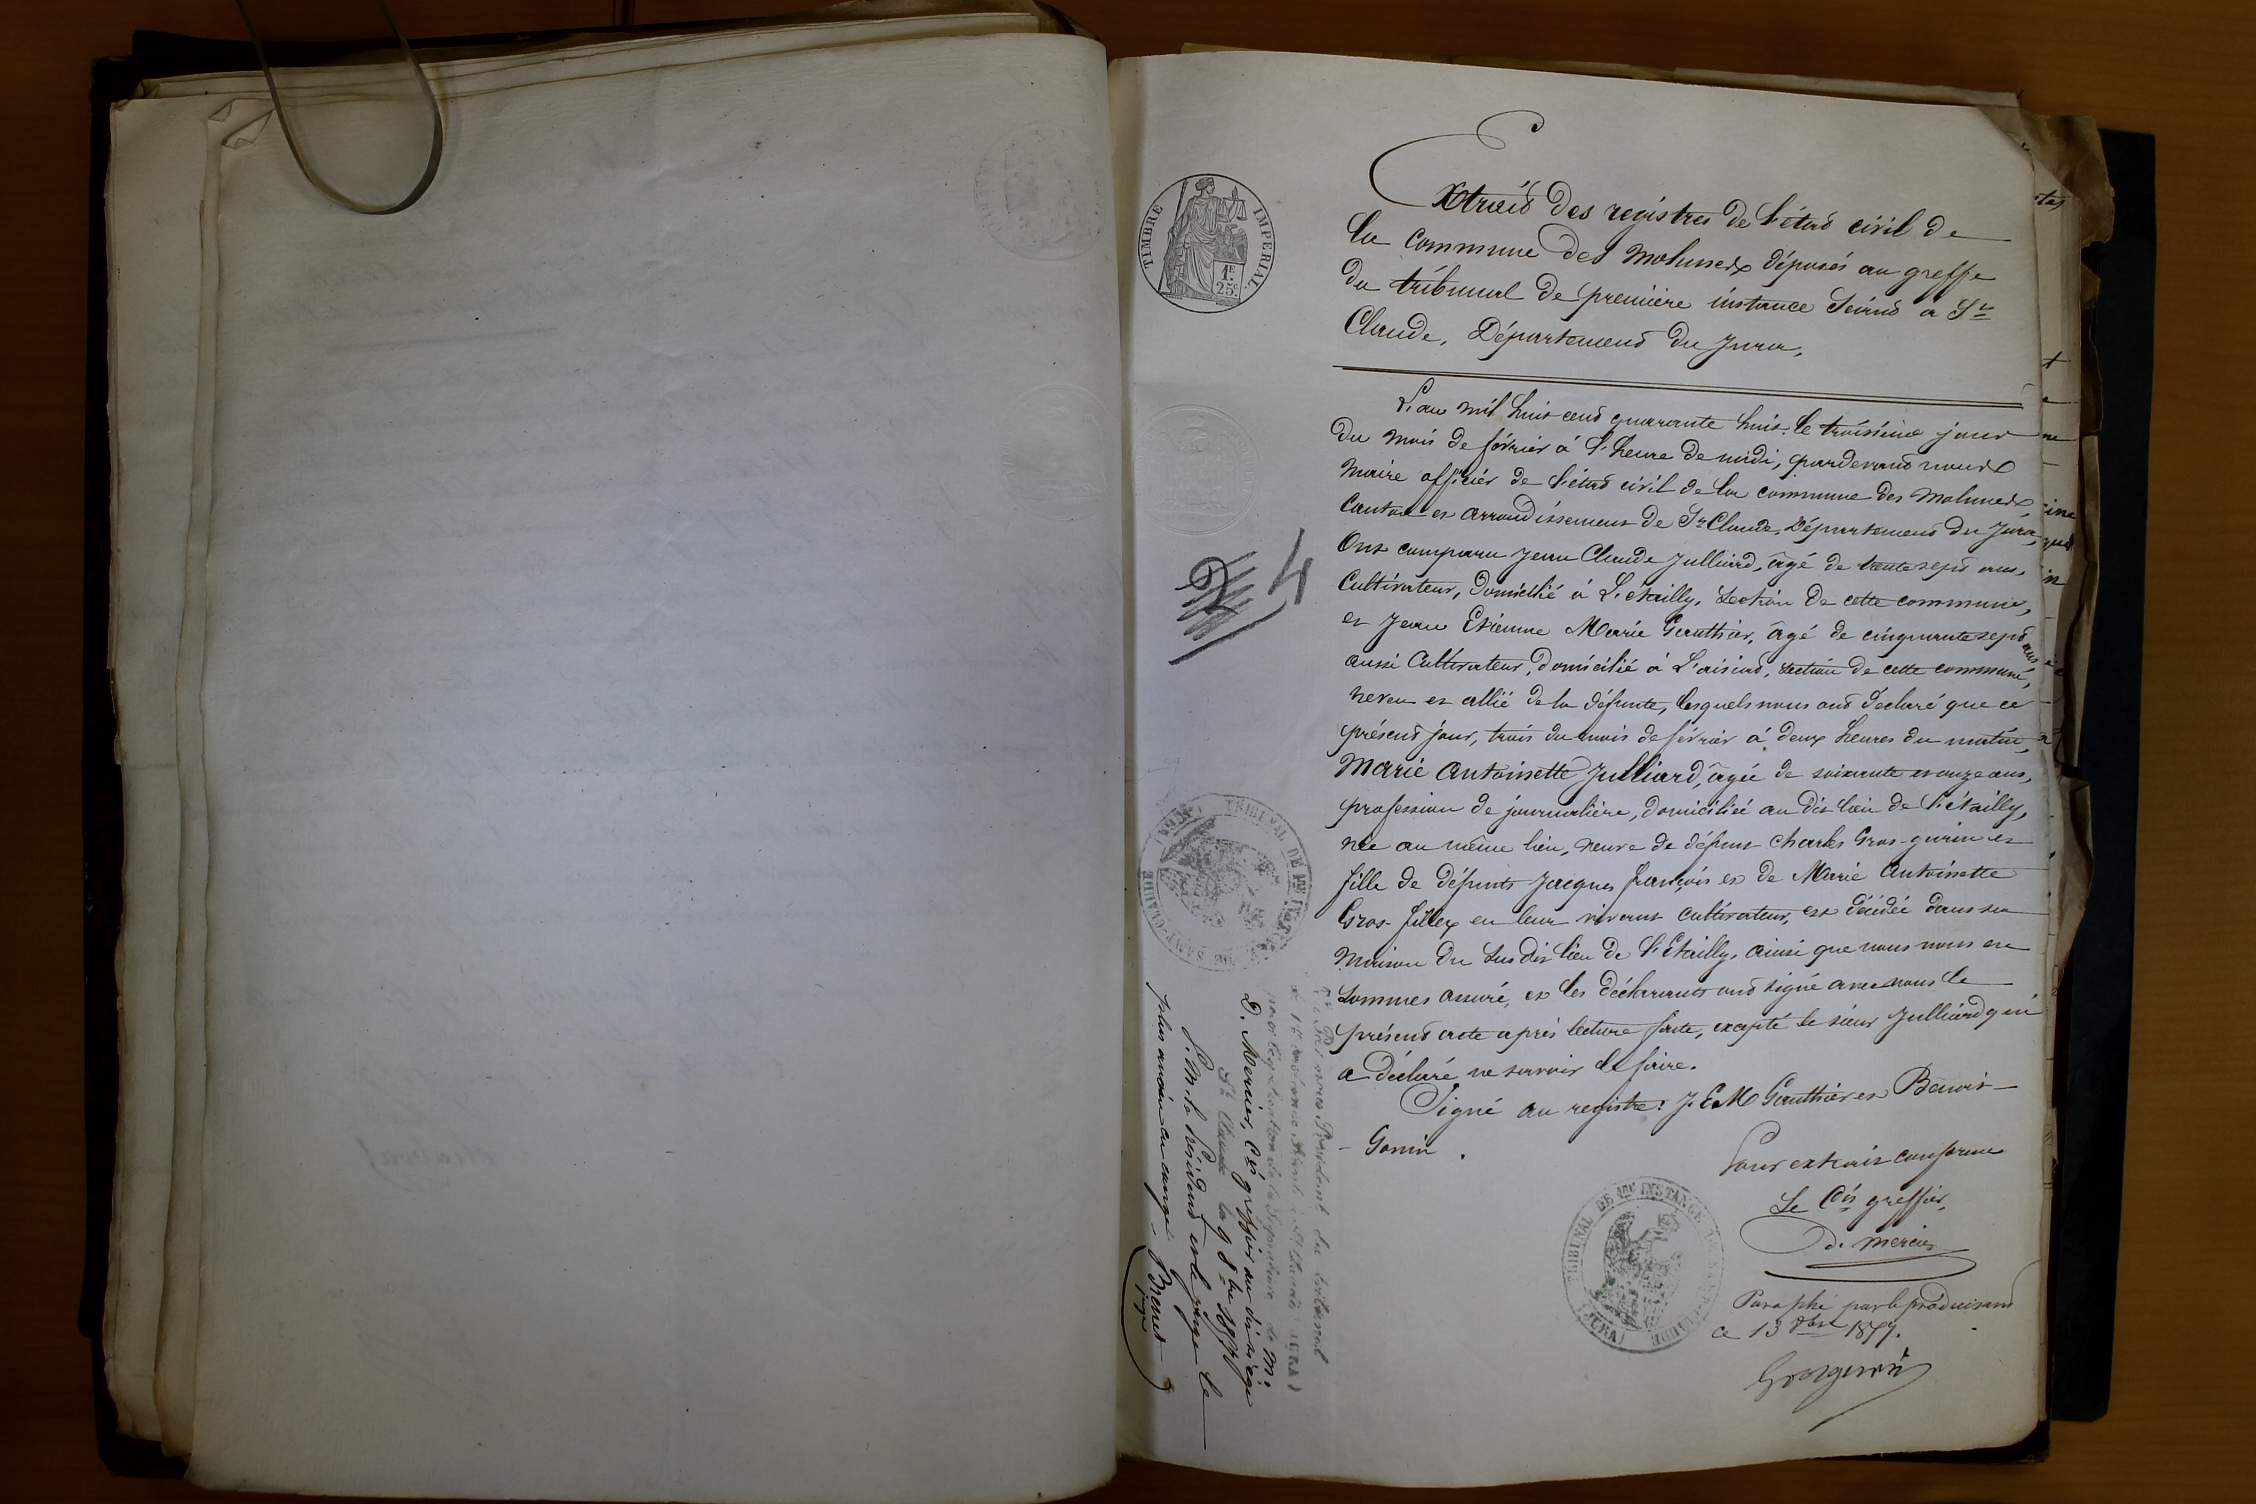 TIMBRE IMPERIAL
1F
25c.
Extrait des registres de l'état civil de
la commune des Molunes déposés au greffe
du tribunal de première instance séant à St
Claude, Département du Jura.
L'an mil huit cent quarante huit, le troisième jour
du mois de février à l'heure de midi, pardevant nous
Maire officier de l'état civil de la commune des Molunes
Canton et arrondissement de St Claude, Département du Jura,
Ont comparu Jean Claude Julliard, âgé de trente sept ans,
Cultivateur, domicilié à L'étailly, section de cette commune,
et Jean Etienne Marie Gauthier, âgé de cinquante sept ans
aussi Cultivateur, domicilié à section de cette commune,
neveu et allié de la défunte, lesquels nous ont déclaré que ce
présent jour, trois du mois de février à deux heures du matin,
Marie Antoinette Julliard, âgée de soixante et onze ans,
profession de journalière, domiciliée au dit lieu de l'étailly,
née au même lieu, veuve de défunt Charles Gros-gurin et
fille de défunts Jacques françois et de Marie Antoinette
Gros-fillex en leur vivant cultivateur, est décédée dans sa
maison du susdit lieu de l'Etailly, ainsi que nous nous en
sommes assuré, et les déclarants ont signé avec nous le
présent acte après lecture faite, excepté le sieur Julliard qui
a déclaré ne savoir le faire.
Signé au registre: J. E. M Gauthier et Benoit-
- Gonin.
Pour extrait conforme
Le Cis greffier,
D. Mercier
Paraphé par le produisant
ce 13 8bre 1877.
Grosgurin
TRIBUNAL DE 1ERE INSTANCE DE SAINT-CLAUDE (JURA)
4
TRIBUNAL DE 1ERE INSTANCE DE SAINT-CLAUDE (JURA)
Président du tribunal
de 1re instance séant à St Claude (JURA)
pour légalisation de la signature de M.
D. Mercier, Cis greffier au dit siège
St Claude le 9 8bre 187
P. M. le Président emp. le juge le
plus ancien en rang.
Brenet
juge